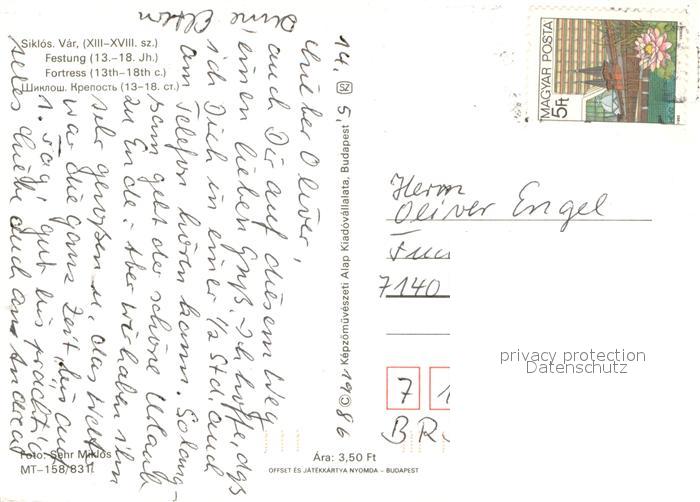 Siklós. Vár, (XIII–XVIII. sz.)
Festung (13.–18. Jh.)
Fortress (13th–18th c.)
Шиклош. Крепость (13–18. ст.)
14. 5. 1986
Lieber Oliver,
auch Dir auf diesem Weg
einen lieben Gruß. Ich hoffe, daß
ich Dich in einer 1/2 Std. auch
am Telefon hören kann. Solang-
sam geht der schöne Urlaub
zu Ende. Aber wir haben ihn
sehr genossen u. das Wetter
war die ganze Zeit, bis auf
1. Tag, gut bis prächtig
alles Liebe auch an Andrea
Deine Eltern
Foto: Sehr Miklós
MT–158/831.
SZ
© Képzőművészeti Alap Kiadóvállalata, Budapest
Ára: 3,50 Ft
OFFSET ÉS JÁTÉKKÁRTYA NYOMDA – BUDAPEST
MAGYAR POSTA
5Ft
Herrn
Oliver Engel
7140
7 1
BR
privacy protection
Datenschutz